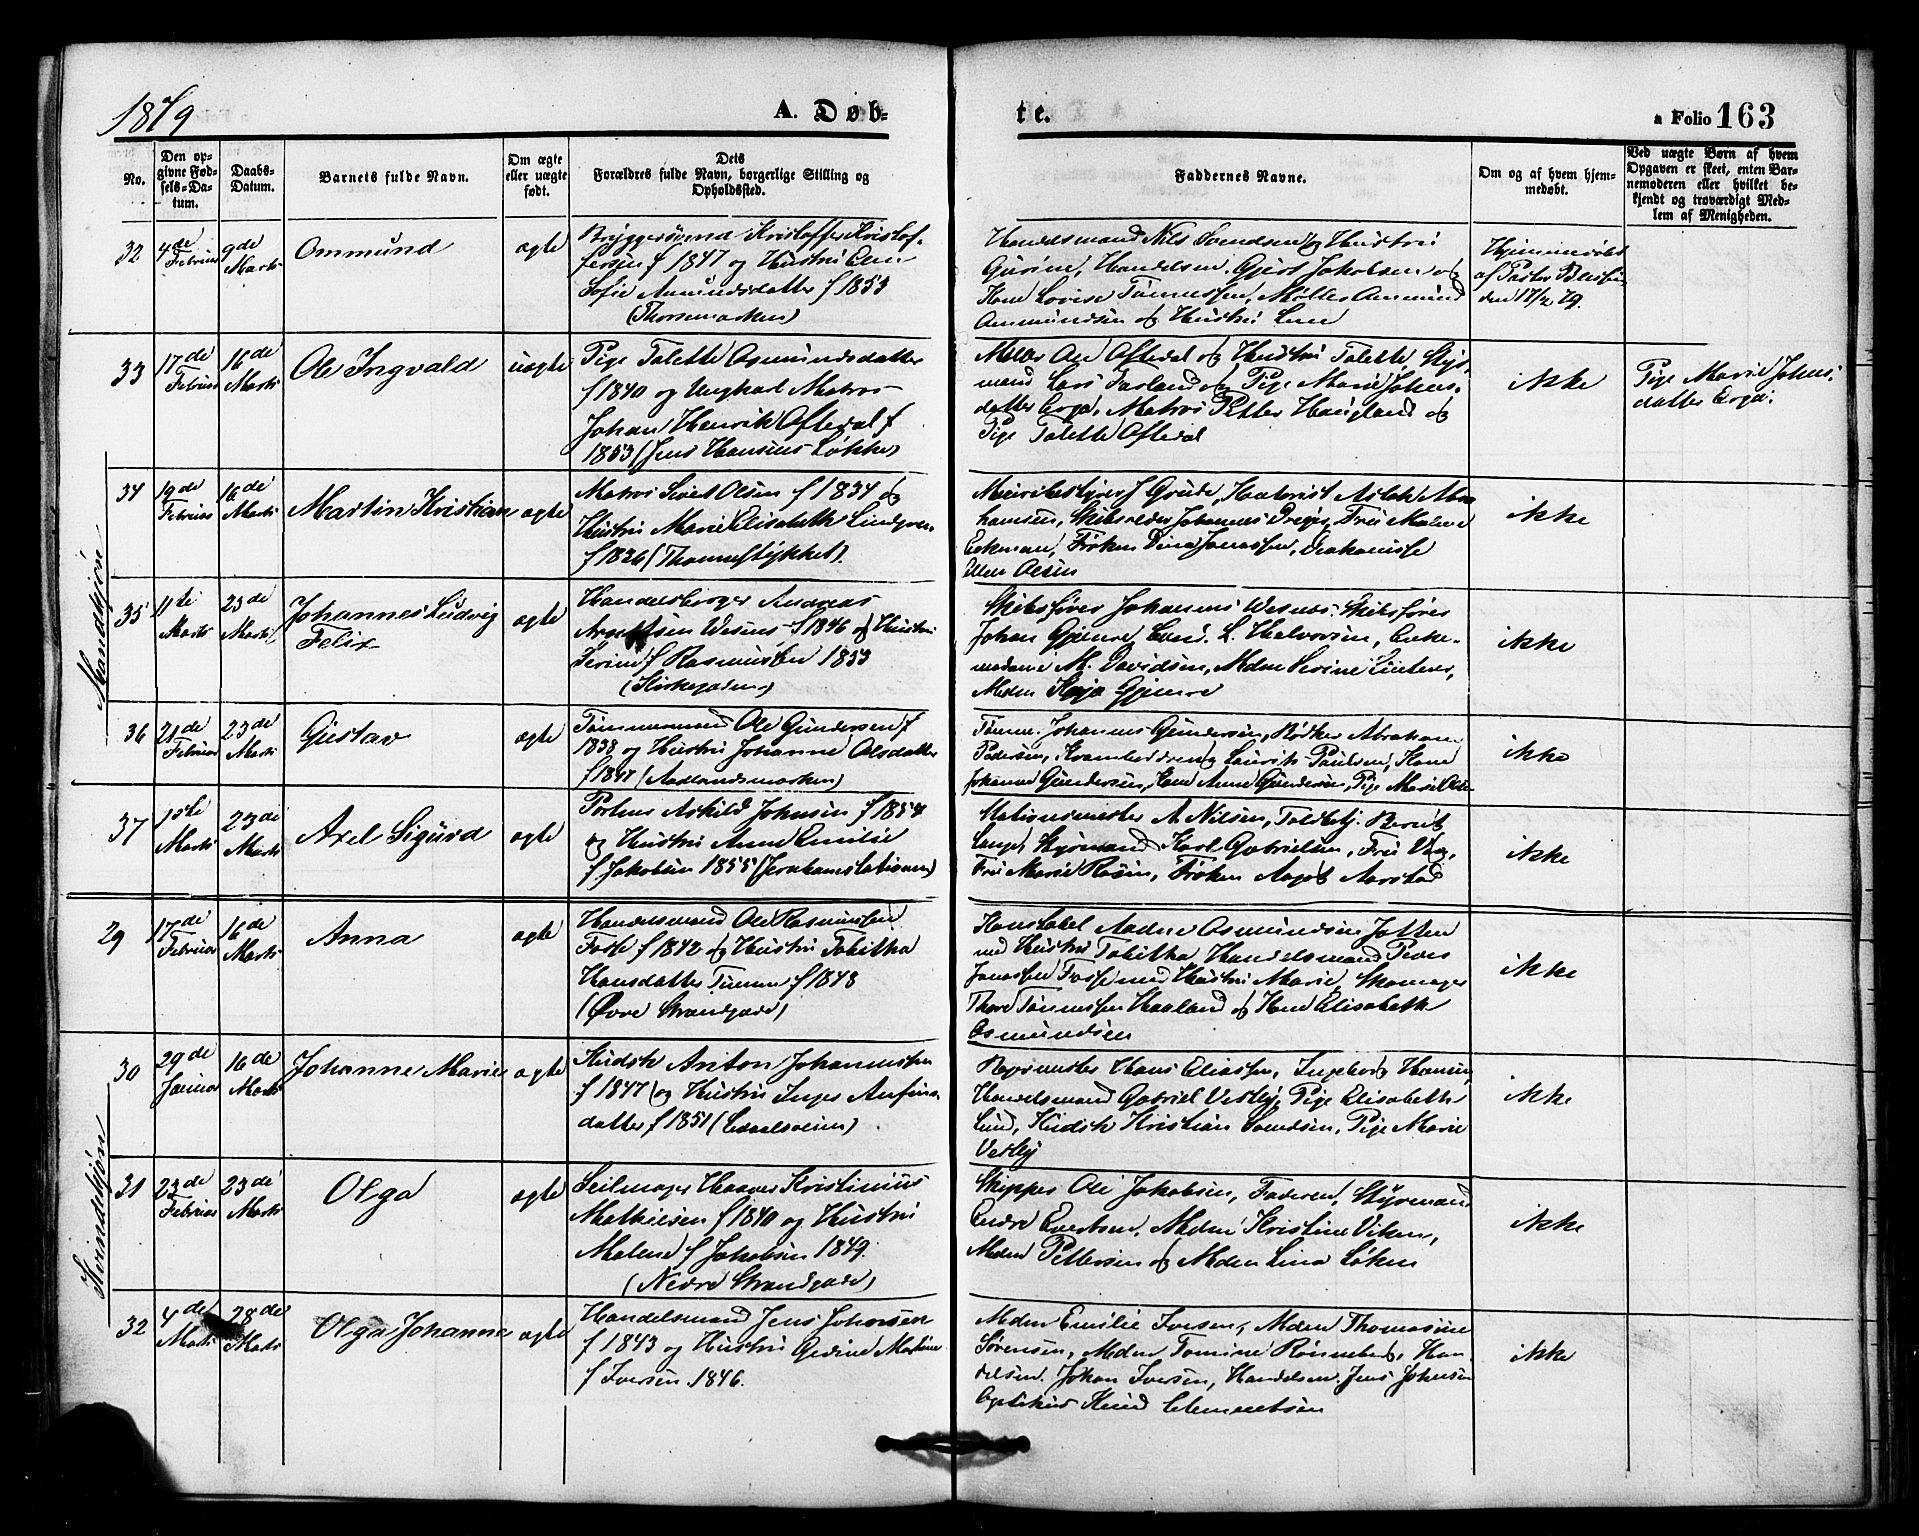 1879
A. Døb-
te.
a Folio 163
No.
Den op-
givne Fød-
sels-Da-
tum.
Daabs-
Datum.
Barnets fulde Navn.
Om ægte
eller uægte
født.
Dets
Forældres fulde Navn, borgerlige Stilling og
Opholdssted.
Faddernes Navne.
Om og af hvem hjem-
medøbt.
Ved uægte Børn af hvem
Opgaven er skeet, enten Bar-
nemoderen eller hvilket be-
kjendt og troværdigt Med-
lem af Menigheden.
Mandkjøn
32
4de
Februar
9de
Marts
Ommund
ægte
Kristoffer Kristof-
fersen f 1847 og Hustru Elen
Sofie Amundsdatter f 1853
Handelsmand Nils Svendsen og Hustru
Gurine, Handelsm. Gjert Jakobsen og
Kone Lovise Tønnessen, Møller Ommund
Ommundsen og Hustru Lene
Hjemmedøbt
af Pastor
den 17/2 79.
33
17de
Februar
16de
Marts
Ole Ingvald
uægte
Pige Talette Osmundsdatter
f 1840 og Ungkarl Matros
Johan Henrik Oftedal f
1853 (Jens Hansens Løkke)
Møller Ole Oftedal og Hustru Talette, Styr-
mand Lars Farland og Pige Marie Johns-
datter Erga, Matros Petter Haugland og
Pige Talette Oftedal
ikke
Pige Marie Johns-
datter Erga.
34
19de
Februar
16de
Marts
Martin Kristian
ægte
Matros Sivert Olsen f 1834 og
Hustru Marie Elisabeth Lindgren
f 1836
Grude, Aslak Abra-
hamsen, Skibsreder Johannes Fru Malene
Eckman, Frøken Dina Janassen, Diakonisse
Ellen Olsen
ikke
35
11te
Marts
23de
Marts
Johannes Ludvig
Felix
ægte
Handelsborger Andreas
Wesnes f 1846 og Hustru
Serine f Rasmussen 1853
(Kirkegaden)
Skibsfører Johannes Wesnes, Skibsfører
Johan Gjemre, Cand. L. Halvorsen, Enke-
madame M. Davidsen, Mdm Serine
Mdm Kaja Gjemre
ikke
36
21de
Februar
23de
Marts
Gustav
ægte
Tømmermand Ole Gundersen f
1838 og Hustru Johanne Olsdatter
f 1847 (Aadlandsmarken)
Tømmm. Johannes Gundersen, Bødker Abraham
Pedersen, Laurits Paulsen, Kone
Johanne Gundersen, Kone Anne Gundersen, Pige Marie
ikke
37
1ste
Marts
23de
Marts
Axel Sigurd
ægte
Askild Johnsen f 1854
og Hustru Anne Emilie
f Jakobsen 1855 (Jernbanestationen)
Stationsmester A. Nilsen, Toldbtj. Berent
Lange, Styrmand Karl Gabrielsen, Fru
Fru Marie Rosen, Frøken Aagot Aarstad
ikke
Kvindekjøn
29
17de
Februar
16de
Marts
Anna
ægte
Handelsmand Ole Rasmussen
Fosse f 1842 og Hustru Tobitha
Hansdatter f 1848
(Øvre Strandgade)
Konstabel Osmundsen Jatten
med Hustru Tabitha, Handelsmand Peder
Janassen Fosse med Hustru Marie, Skomager
Thore Tønnessen Haaland og Kone Elisabeth
Osmundsen
ikke
30
29de
Januar
16de
Marts
Johanne Marie
ægte
Kudsk Anton Johannessen
f 1847 og Hustru Inger Anfins-
datter f 1851
Hans Eliassen, Ingeborg Hansen,
Handelsmand Gabriel Vestby, Pige Elisabeth
Lund, Kudsk Kristian Svendsen, Pige Marie
Vestby
ikke
31
23de
Februar
23de
Marts
Olga
ægte
Seilmager Haaver Kristinius
Mathiesen f 1840 og Hustru
Malene f Jakobsen 1849.
(Nedre Strandgade)
Skipper Ole Jakobsen, Faderen, Styrmand
Endre Evertsen, Mdm Kristine Viken,
Mdm Pettersen og Mdm Lina Løken
ikke
32
4de
Marts
28de
Marts
Olga Johanne
ægte
Handelsmand Jens Johnsen
f 1843 og Hustru Gedine Martine
f Iversen 1846.
Mdm Emilie Iversen, Mdm Thomasine
Sørensen, Mdm Tomine Rønneberg, Han-
delsm. Johan Iversen, Handelsm. Jens Johnsen
Knud Clementsen
ikke